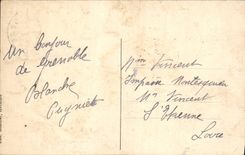 Un bonjour
de Grenoble
Blanche
Mme Vincent
Impasse Montesquieu
Mr Vincent
St Etienne
Loire